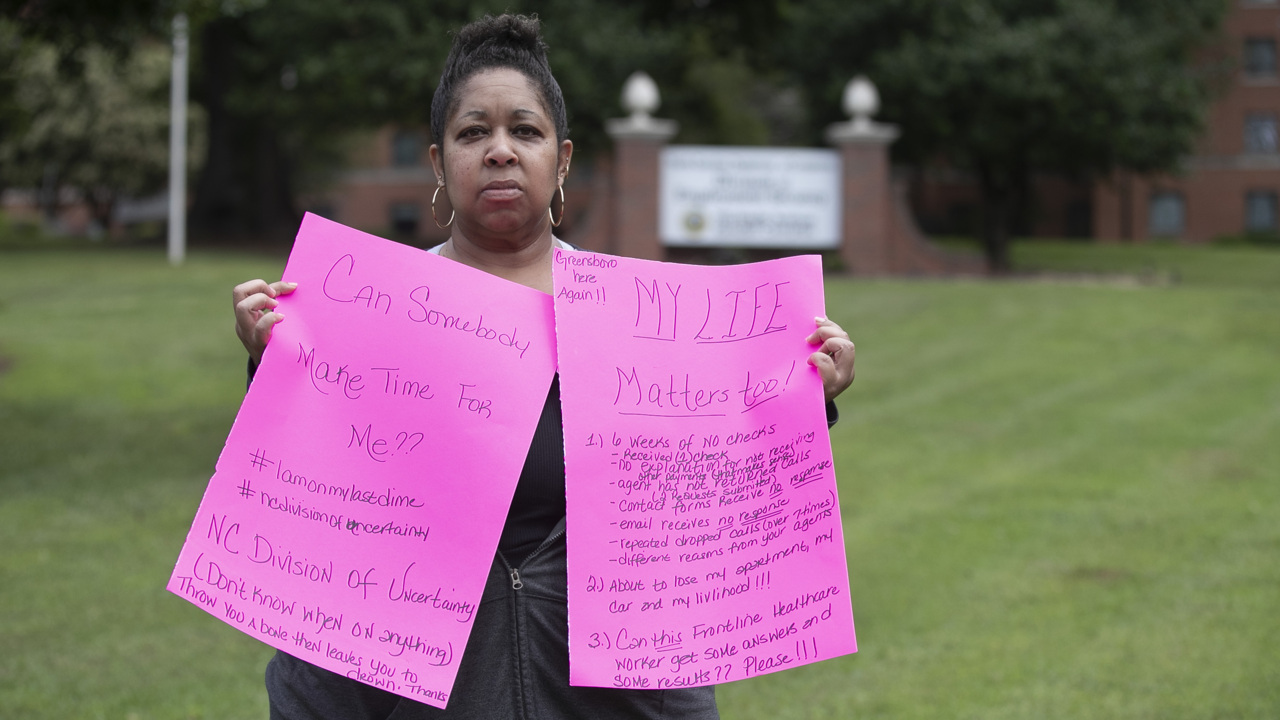 Can Somebody
Make Time For
Me??
#Iamonmylastdime
#ncdivisionofuncertainty
NC Division of Uncertainty
(Don't know when or anything)
Throw you a bone then leaves you to
drown. Thanks
Greensboro
here
Again!!
MY LIFE
Matters too!
1.) 6 weeks of No checks
- Received (1) check
- no explanation for not receiving
other payments (that makes sense)
- agent has not returned calls
(2 Requests submitted)
- Contact forms Receive no response
- email receives no response
- repeated dropped calls (over 7 times)
- different reasons from your agents
2.) About to lose my apartment, my
car and my livlihood!!!
3.) Can this Frontline Healthcare
worker get some answers and
some results?? Please!!!